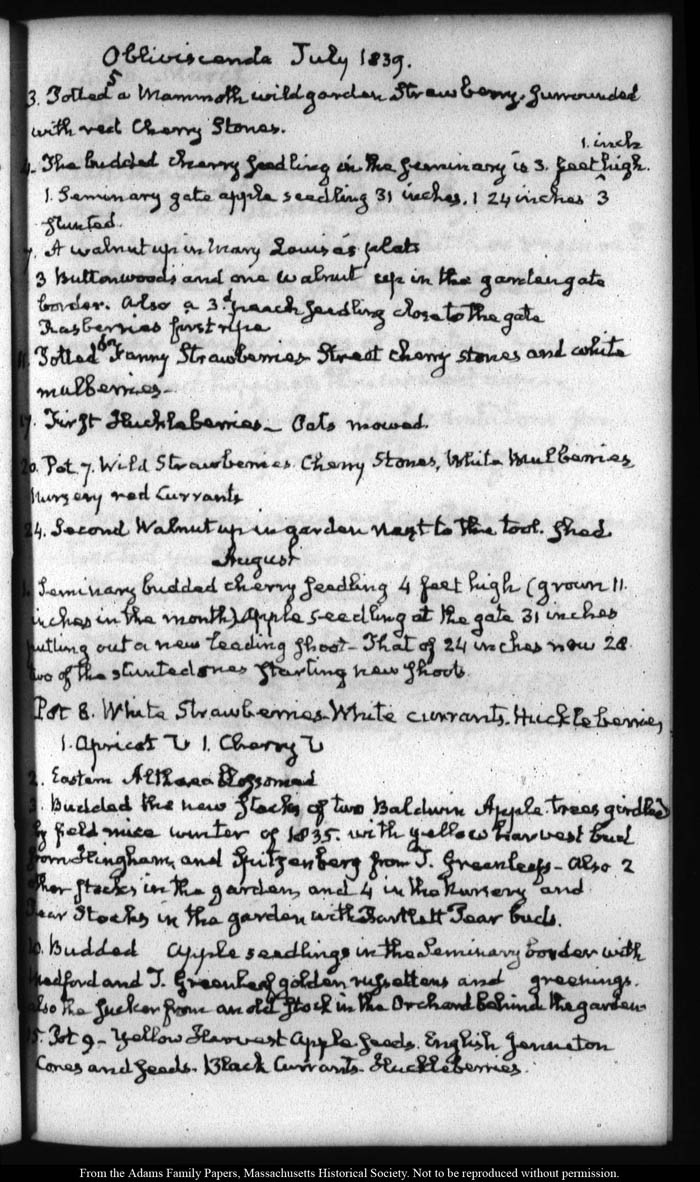 Obliviscenda July 1839.
3. Potted 5 a Mammoth wild garden Strawberry. Surrounded
with red Cherry Stones.
4. The budded cherry seedling in the Seminary is 3. feet 1. inch high.
1. Seminary gate apple seedling 31 inches. 1 24 inches 3
stunted.
7. A walnut up in Mary Louisa's plat
3 Buttonwoods and one walnut up in the garden gate
border. Also a 3d peach seedling close to the gate
Rasberries first ripe
11. Potted 6 for Fanny Strawberries Street cherry stones and white
mulberries-
17. First Huckleberries- Oats mowed.
20. Pot 7. Wild Strawberries. Cherry Stones, White Mulberries
Nursery red Currants
24. Second Walnut up in garden next to the tool. shed
August
1. Seminary budded cherry seedling 4 feet high (grown 11.
inches in the month) Apple seedling at the gate 31 inches
putting out a new leading shoot- That of 24 inches now 28
two of the stunted ones starting new shoots
Pot 8. White Strawberries White currants. Huckleberries,
1. Apricot 1. Cherry
2. Eastern Althaea Blossomed
3. Budded the new stocks of two Baldwin Apple trees girdled
by field mice winter of 1835. with yellow harvest bud
from Hingham, and Spitzenberg from T. Greenleaf- Also 2
other stocks in the garden, and 4 in the Nursery and
Pear Stocks in the garden with Bartlett Pear buds.
10. Budded Apple seedlings in the Seminary border with
Medford and T. Greenleaf golden russettens and greenings.
also the sucker from an old stock in the Orchard behind the garden
15. Pot 9- Yellow Harvest Apple seeds. English
Cones and seeds. Black Currants. Huckleberries.
From the Adams Family Papers, Massachusetts Historical Society. Not to be reproduced without permission.